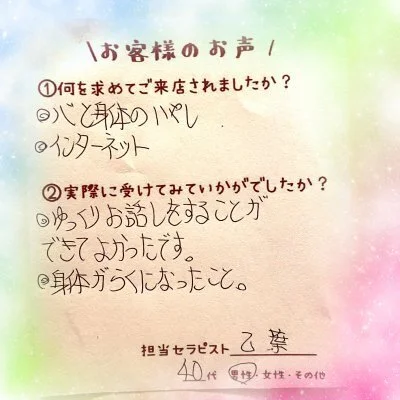 \お客様のお声/
①何を求めてご来店されましたか？
◎心と身体のいやし
◎インターネット
②実際に受けてみていかがでしたか？
◎ゆっくりお話しをすることが
できてよかったです。
◎身体がらくになったこと。
担当セラピスト 乙葉
40代 男性・女性・その他